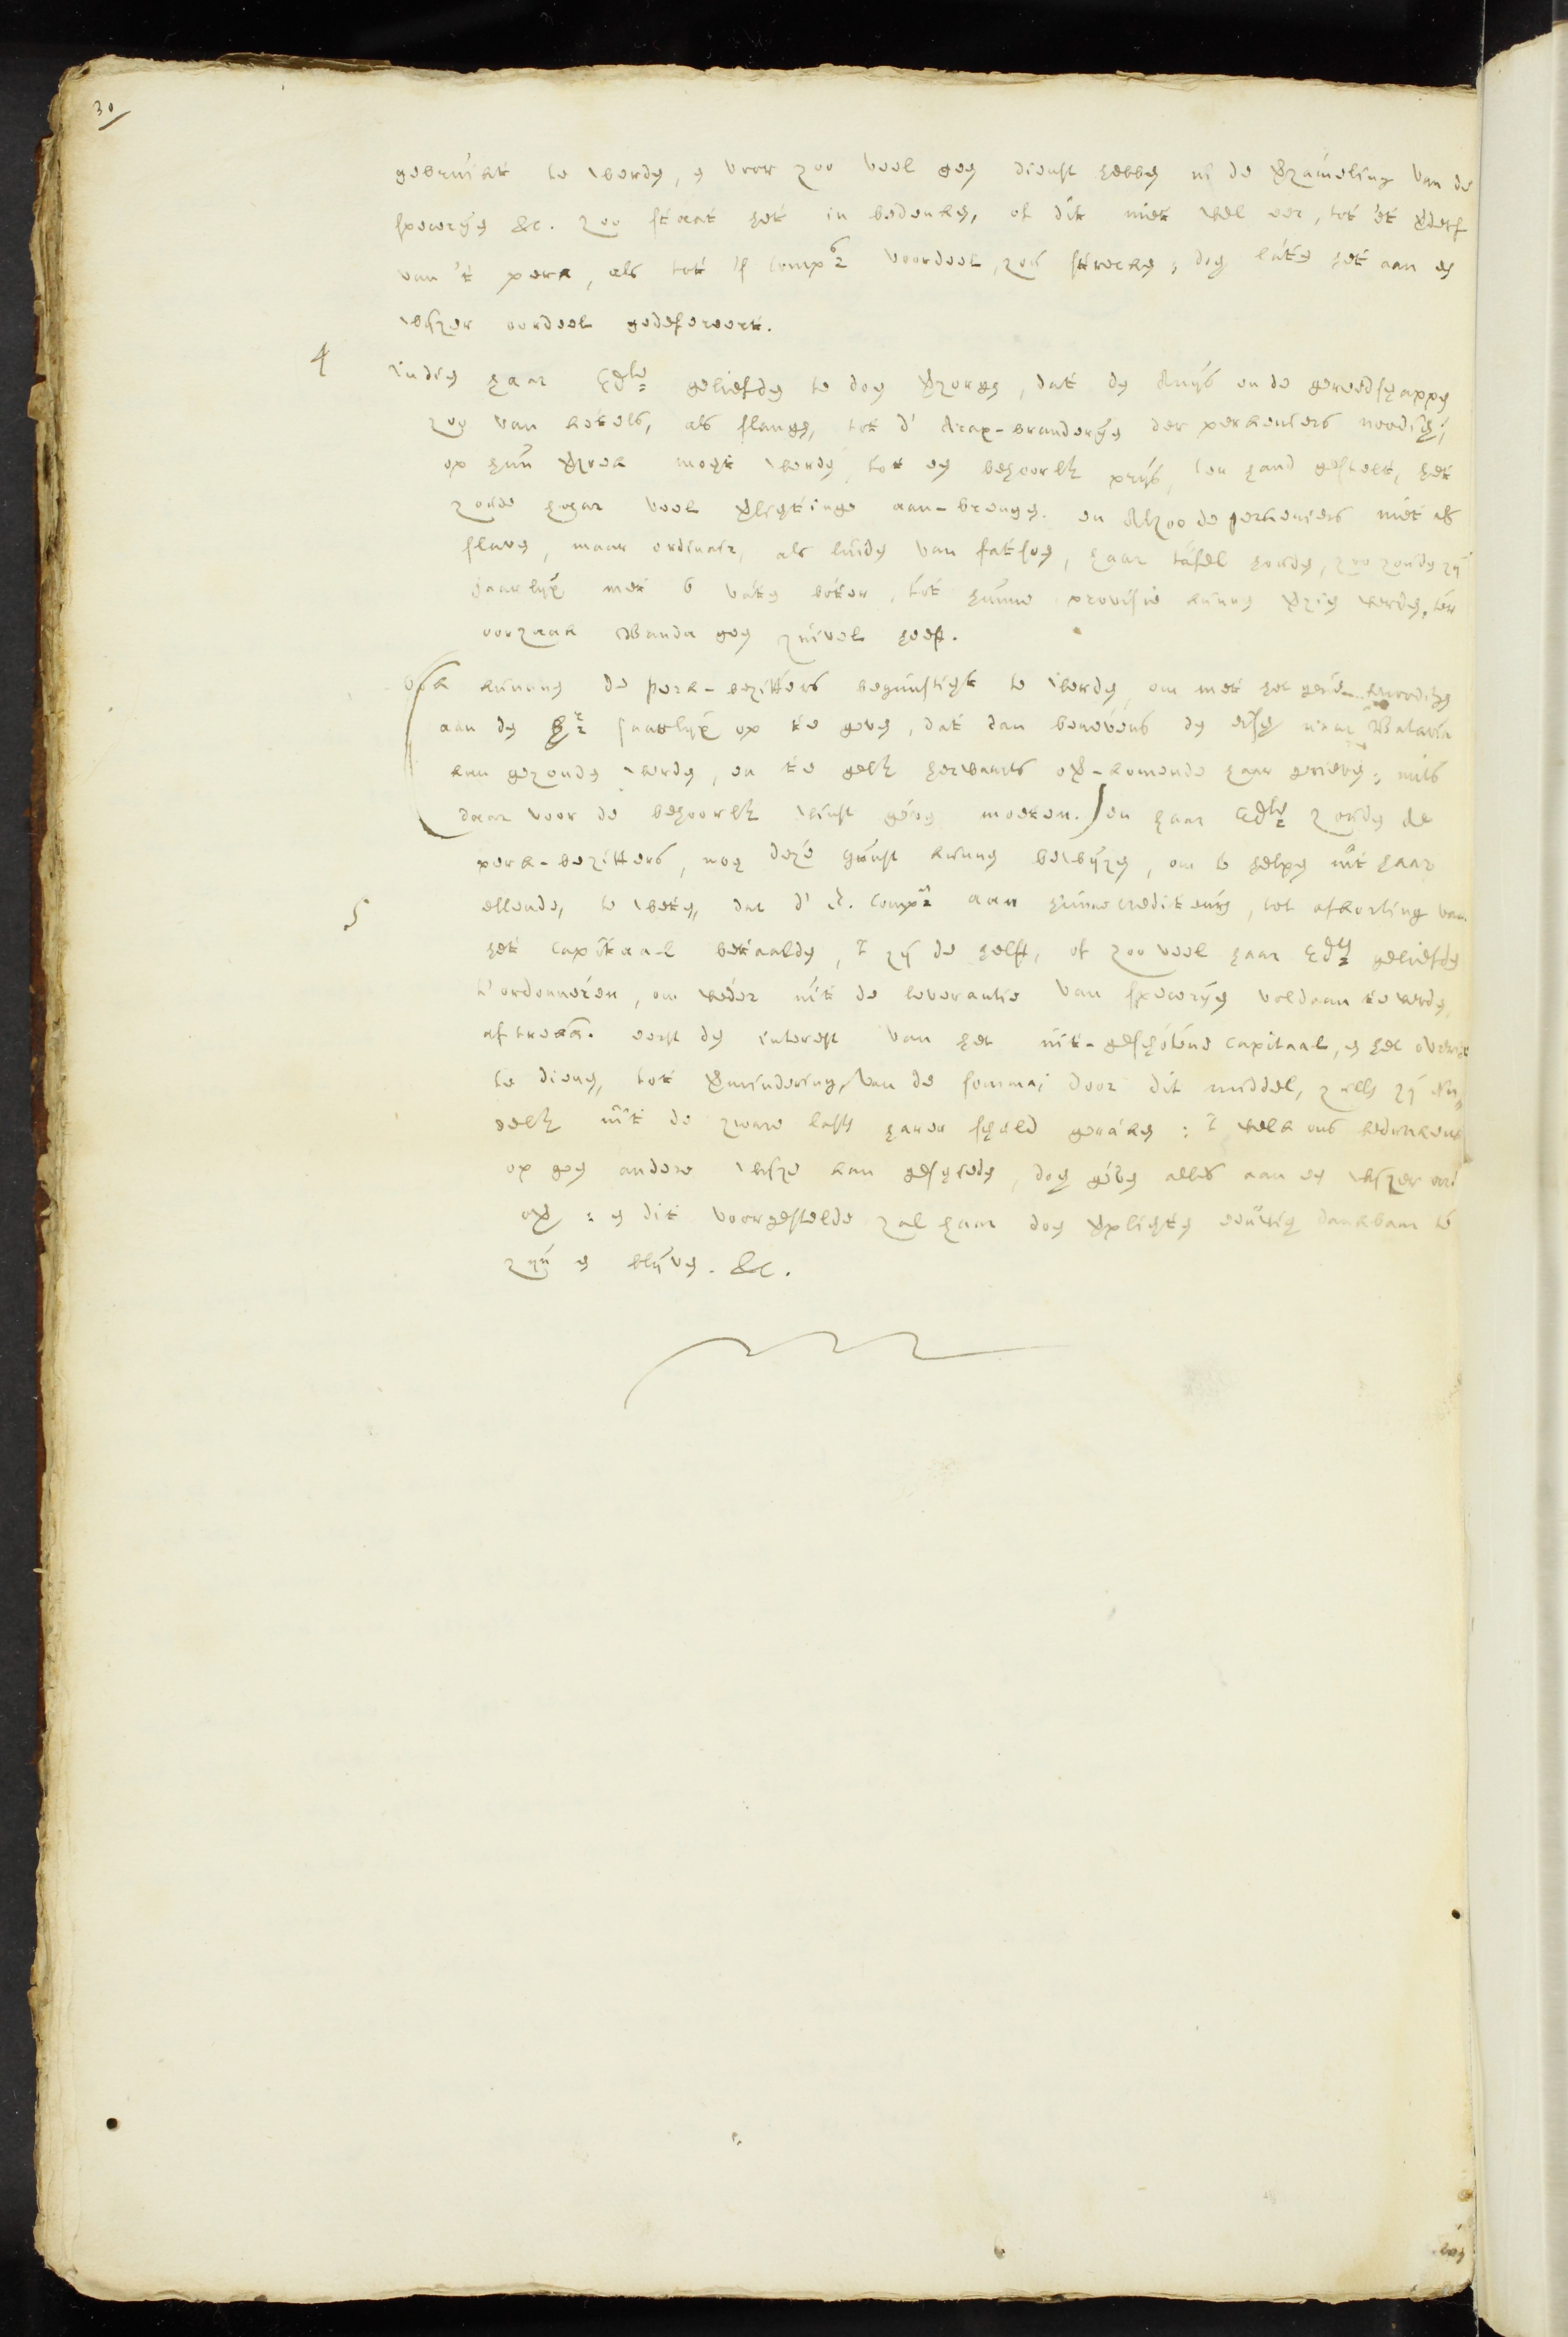 30
gebruikt te werden, en voor zoo veel geen dienst hebben in de verzameling van de
specerijen &c. zoo staat het in bedenken, of dit niet wel eer, tot 't verderf
van 't perk, als tot 's Comps voordeel, zou strecken; dog laten het aan een
wijzer oordeel gedefereert.
4 indien haar Edle geliefden te doen verzorgen, dat de Kuijs en de gereedschappen
zoo van ketels, als slangen, tot d' Arax-branderijen der perkeniers noodich,
op hun verzoek mogt werden, tot een behoorlk prijs, ter hand gestelt, het
zoude haar veel verlichtinge aan-brengen. en Alzoo de perkeniers niet als
slaven, maar ordinair, als luiden van fatsoen, haar tafel houden, zoo zouden zij
jaarlijx met 6 vaten boter, tot hunne provisie kunnen verzien werden, ter
oorzaak Banda geen zuivel heeft.
Ook kunnen de perk-bezitters begunstigt te werden, om met het
aan den jaarlijx op te geven, dat dan benevens den eisch naar Batavia
kan gezonden werden, en te gelk herwaerts over-komende haar gerieven; mits
daar voor de behoorlk winst geven moeten.) en haar Edle zouden de
perk-bezitters, nog deze gunst kunnen bewijzen, om te helpen uit haar
5 ellende, te weten, dat d' E. Compe aan hunne crediteurs, tot afkorting van
het Capitaal betaalden, 't zij de helft, of zoo veel haar Edle geliefden
t' ordonneren, om weder uit de leverantie van specerijen voldaan te werden,
aftreckk. eerst den interest van het uit-geschotene Capitaal, en het overige
te dienen, tot vermindering van de somma; door dit middel, zulln zij
delk uit de zware lastn harer schuld geraken: 't welk ons bedunkens
op geen andere wijze kan geschieden, dog geven alles aan een wijzer oord
over: en dit voorgestelde zal haar doen verplichten eeuwig dankbaar te
zijn en blijven. &c.